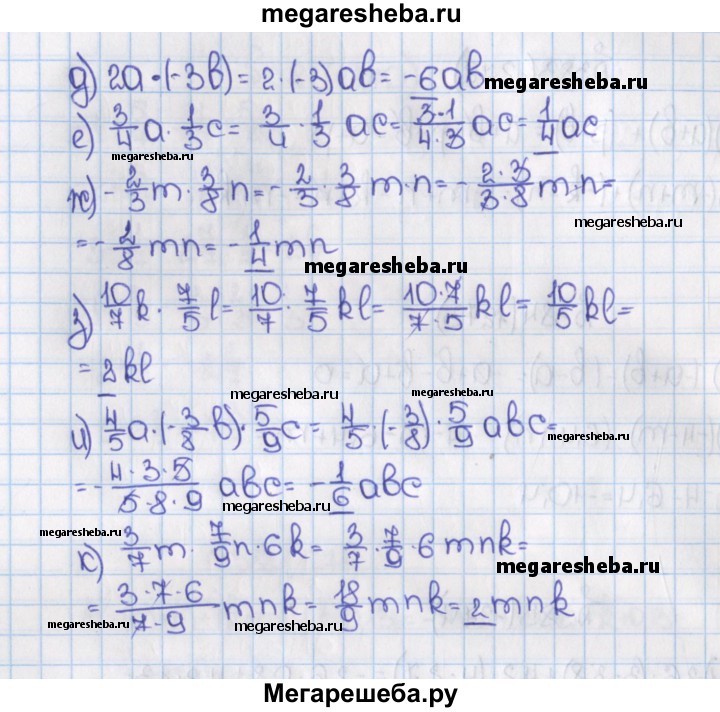 megaresheba.ru
д) 2a·(-3b) = 2·(-3)ab = -6ab
megaresheba.ru
е) 3/4 a · 1/3 c = 3/4 · 1/3 ac = 3·1/4·3 ac = 1/4 ac
megaresheba.ru
ж) - 2/3 m · 3/8 n = - 2/3 · 3/8 m·n = - 2·3/3·8 m·n =
megaresheba.ru
= - 2/8 mn = - 1/4 mn
megaresheba.ru
з) 10/7 k · 7/5 l = 10/7 · 7/5 kl = 10·7/7·5 kl = 10/5 kl =
= 2kl
megaresheba.ru megaresheba.ru
и) 4/5 a·(- 3/8 b)· 5/9 c = 4/5 ·(- 3/8)· 5/9 abc =
= - 4·3·5/5·8·9 abc = - 1/6 abc
megaresheba.ru
к) 3/7 m · 7/9 n·6k = 3/7 · 7/9 ·6 mnk =
megaresheba.ru
= 3·7·6/7·9 mnk = 18/9 mnk = 2mnk
megaresheba.ru megaresheba.ru
Мегарешеба.ру